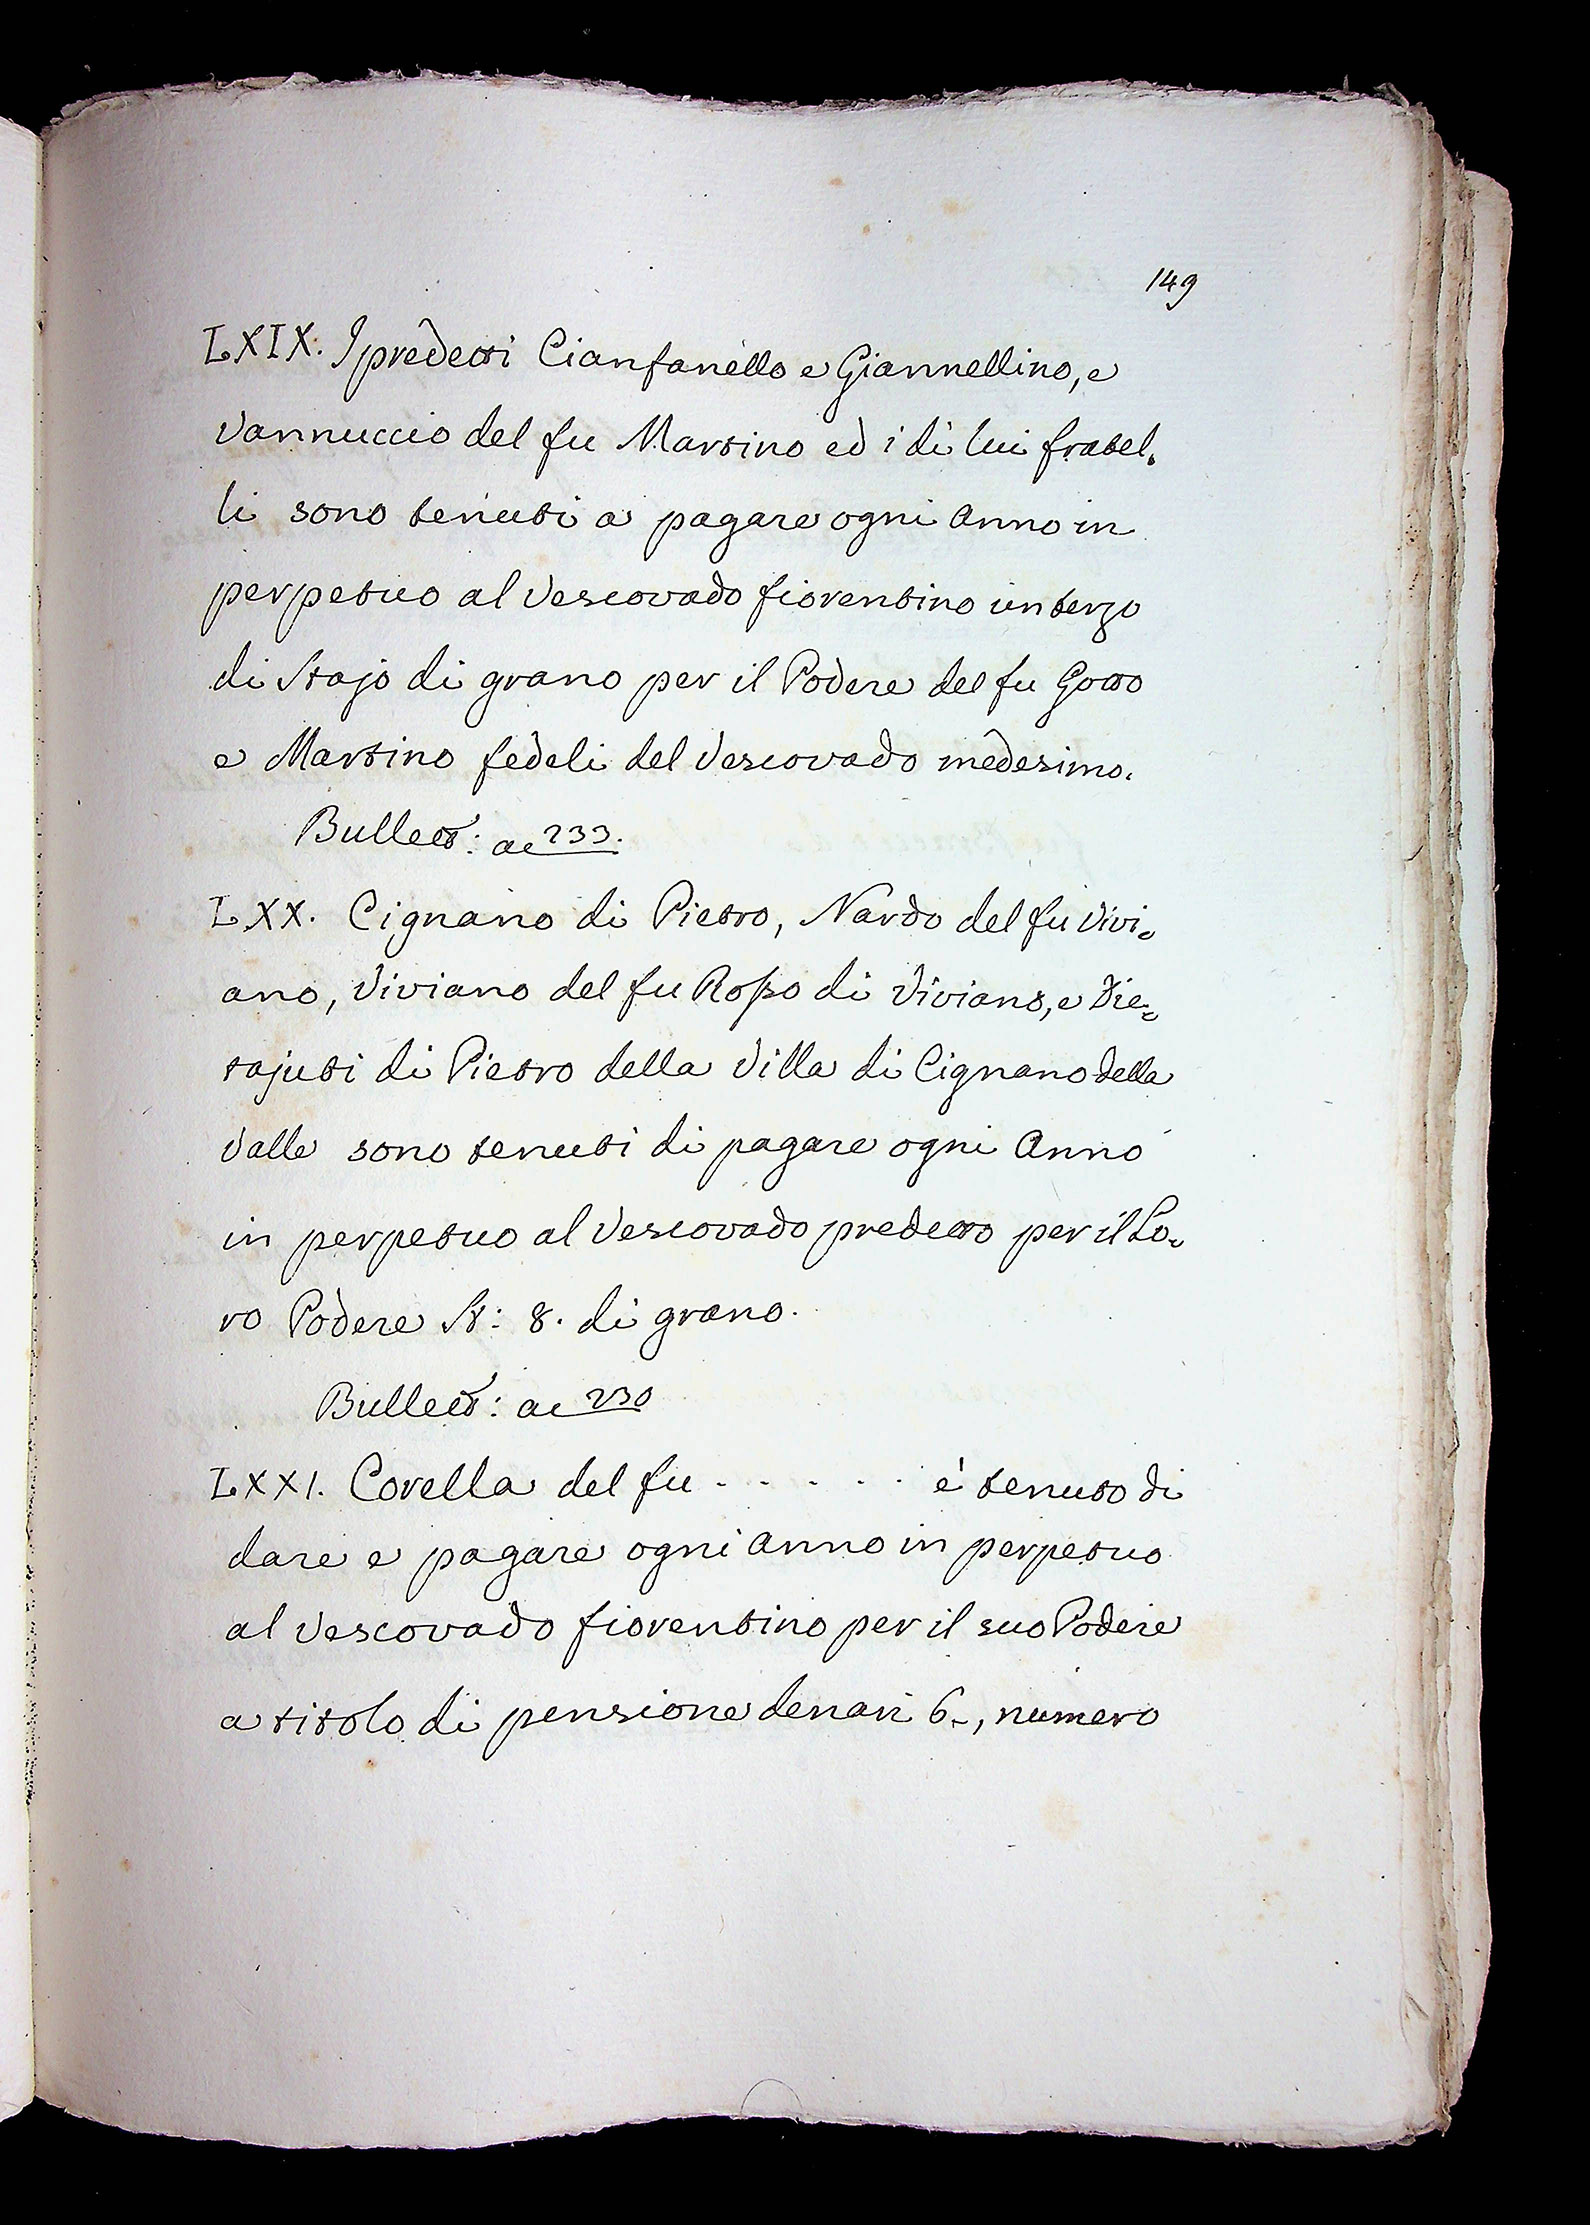 149
LXIX. I predetti Cianfanello e Giannellino, e
Vannuccio del fu Martino ed i di lui fratel-
li sono tenuti a pagare ogni Anno in
perpetuo al Vescovado fiorentino un terzo
di Stajo di grano per il Podere del fu Gotto
e Martino fedeli del Vescovado medesimo.
Bullett: ac 233.
LXX. Cignano di Pietro, Nardo del fu Vivi-
ano, Viviano del fu Rosso di Viviano, e Die-
tajuti di Pietro della Villa di Cignano della
Valle sono tenuti di pagare ogni Anno
in perpetuo al Vescovado predetto per il Lo-
ro Podere St: 8. di grano.
Bullett: ac 230
LXXI. Corella del fu . . . . . . è tenuto di
dare e pagare ogni Anno in perpetuo
al Vescovado fiorentino per il suo Podere
a titolo di pensione denari 6-, numero